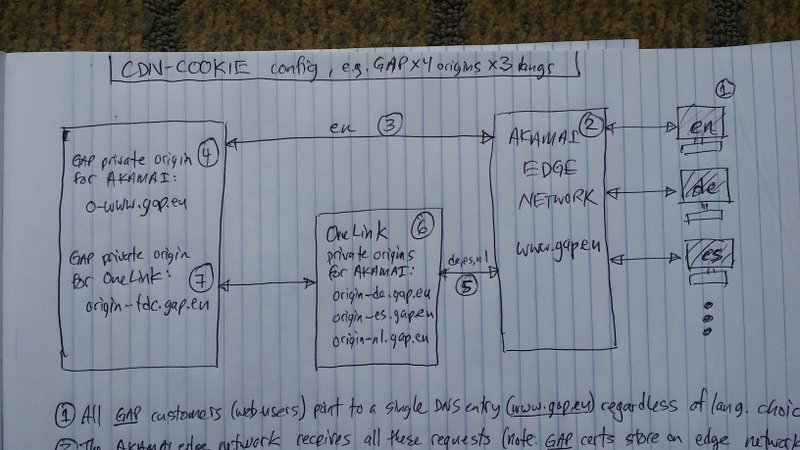 CDN-COOKIE config, e.g. GAP x 4 origins x 3 langs
1
en
3
en
4
GAP private origin
for AKAMAI:
o-www.gap.eu
GAP private origin
for OneLink:
7
origin-tdc.gap.eu
6
OneLink
private origins
for AKAMAI:
origin-de.gap.eu
origin-es.gap.eu
origin-nl.gap.eu
de,es,nl
5
2
AKAMAI
EDGE
NETWORK
www.gap.eu
de
es
1 All GAP customers (web users) point to a single DNS entry (www.gap.eu) regardless of lang. choic
2 The AKAMAI edge network receives all these requests (note: GAP certs store on edge network